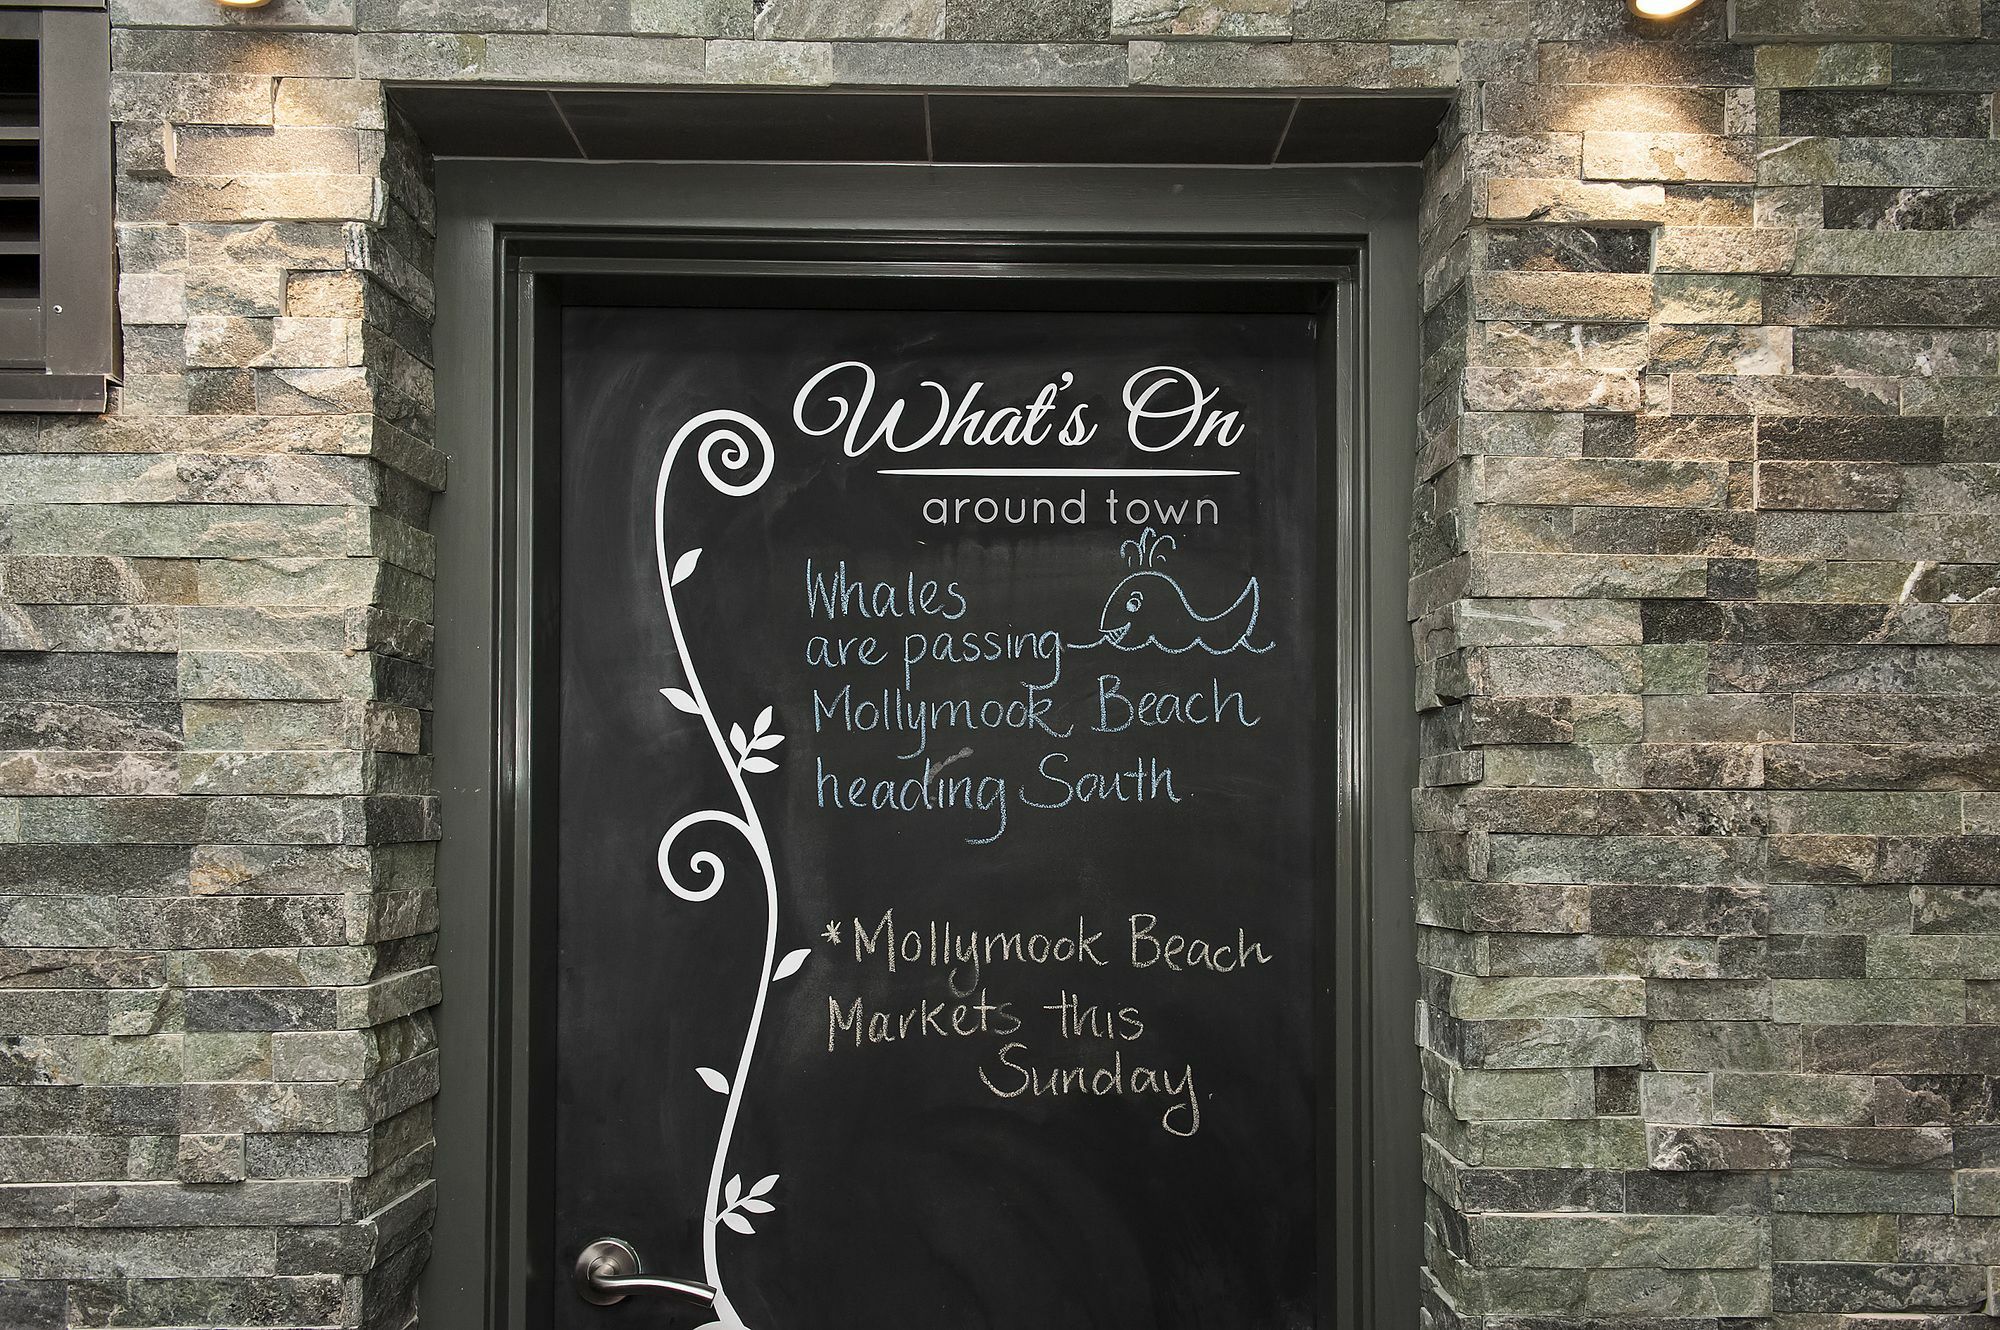 What's On
around town
Whales
are passing
Mollymook Beach
heading South.
*Mollymook Beach
Markets this
Sunday.